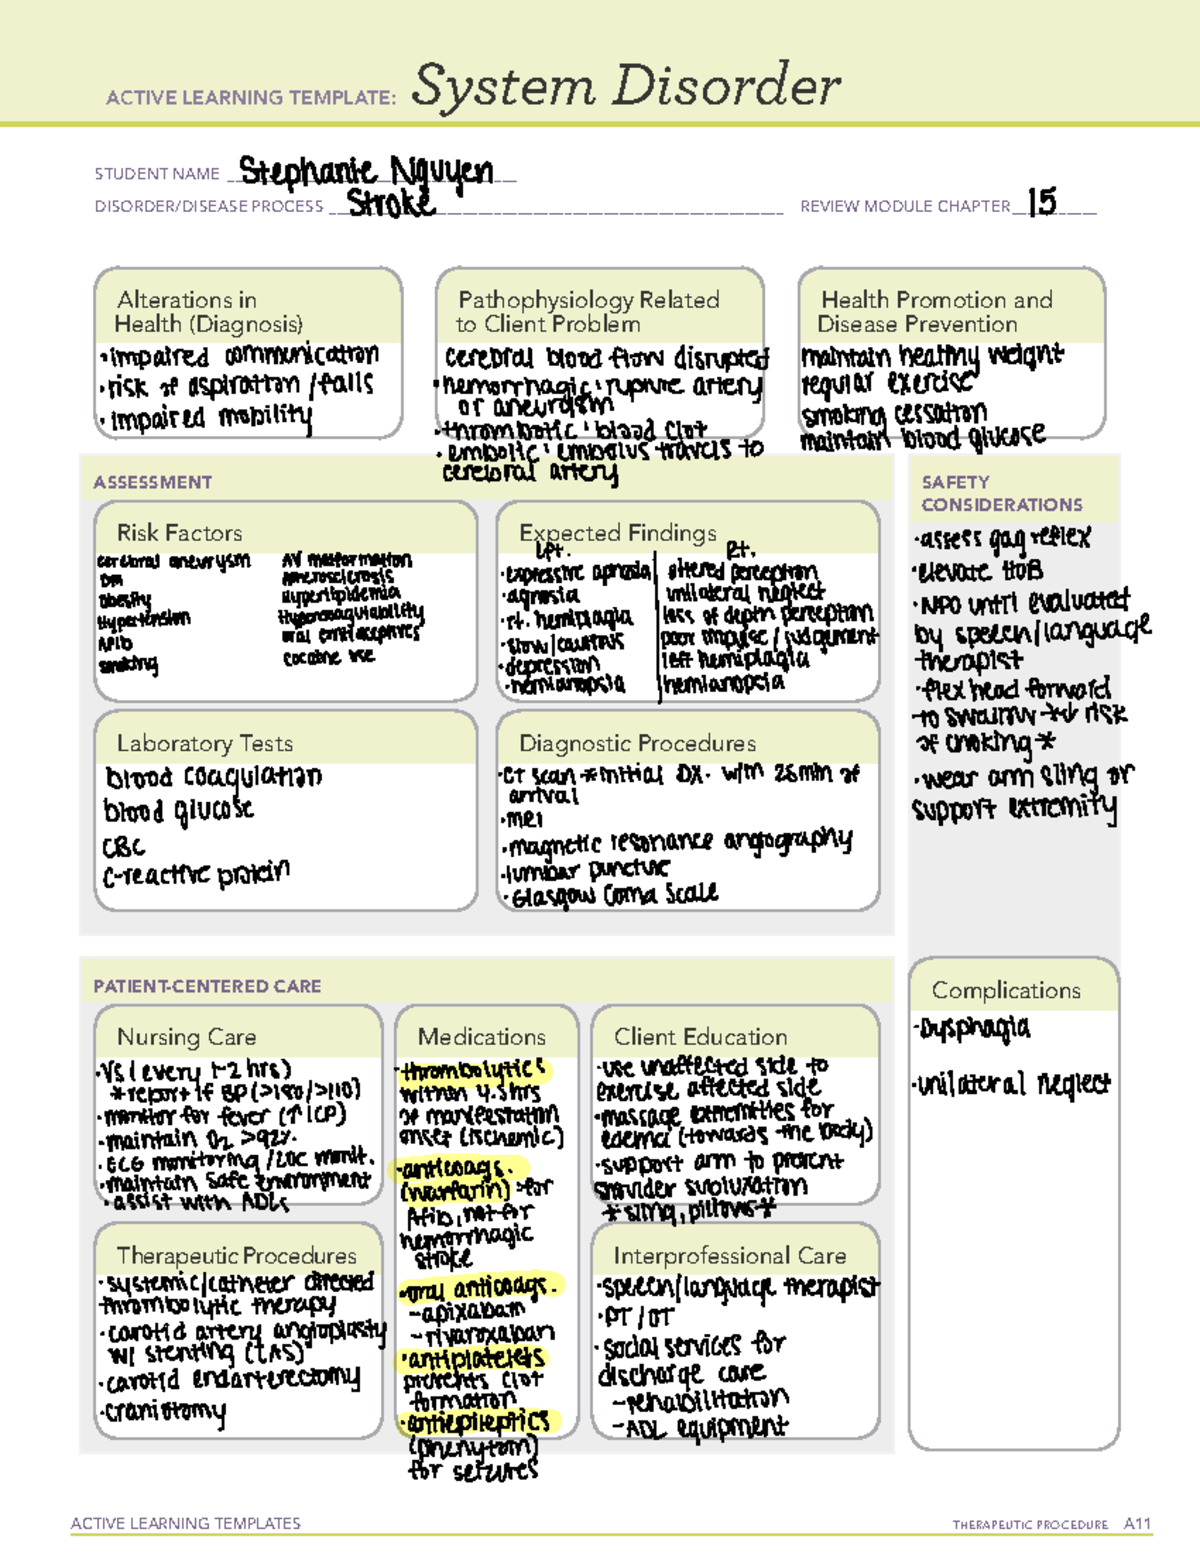 ACTIVE LEARNING TEMPLATE: System Disorder
STUDENT NAME Stephanie Nguyen
DISORDER/DISEASE PROCESS Stroke REVIEW MODULE CHAPTER 15
Alterations in
Health (Diagnosis)
• impaired communication
• risk of aspiration / falls
• impaired mobility
Pathophysiology Related
to Client Problem
cerebral blood flow disrupted
• hemorrhagic: rupture artery
or aneurysm
• thrombotic: blood clot
• embolic: embolus travels to
cerebral artery
Health Promotion and
Disease Prevention
maintain healthy weight
regular exercise
smoking cessation
maintain blood glucose
ASSESSMENT
Risk Factors
cerebral aneurysm
DM
Obesity
Hypertension
AFib
smoking
AV malformation
Atherosclerosis
Hyperlipidemia
Hypercoagulability
oral contraceptives
cocaine use
Expected Findings
Lft.
• expressive aphasia
• agnosia
• rt. hemiplagia
• slow/cautious
• depression
• hemianopsia
Rt.
altered perception
unilateral neglect
loss of depth perception
poor impulse / judgement
left hemiplagia
hemianopsia
Laboratory Tests
blood coagulation
blood glucose
CBC
C-reactive protein
Diagnostic Procedures
• CT scan *initial DX. w/in 25min of
arrival
• MRI
• magnetic resonance angography
• lumbar puncture
• Glasgow Coma Scale
SAFETY
CONSIDERATIONS
• assess gag reflex
• elevate HOB
• NPO until evaluated
by speech/language
therapist
• flex head forward
to swallow *↓ risk
of choking *
• wear arm sling or
support extremity
PATIENT-CENTERED CARE
Nursing Care
• VS (every 1-2 hrs)
* report if BP (>180/>110)
• monitor for fever (↑ICP)
• maintain O2 >92%.
• ECG monitoring /LOC monit.
• maintain safe environment
• assist with ADLs
Medications
• thrombolytics
within 4.5hrs
of manifestation
onset (ischemic)
• anticoags.
(warfarin) :for
Afib, not for
hemorrhagic
stroke
• oral anticoags.
- apixaban
- rivaroxaban
• antiplatelets
prevents clot
formation
• antiepileptics
(phenytoin)
for seizures
Client Education
• use unaffected side to
exercise affected side
• massage extremities for
edema (towards the body)
• support arm to prevent
shoulder
* sling, pillows *
Therapeutic Procedures
• systemic/catheter directed
thrombolytic therapy
• carotid artery angioplasty
w/ stenting (CAS)
• carotid endarterectomy
• craniotomy
Interprofessional Care
• speech/language therapist
• PT / OT
• social services for
discharge care
- rehabilitation
- ADL equipment
Complications
• Dysphagia
• unilateral neglect
ACTIVE LEARNING TEMPLATES
THERAPEUTIC PROCEDURE A11